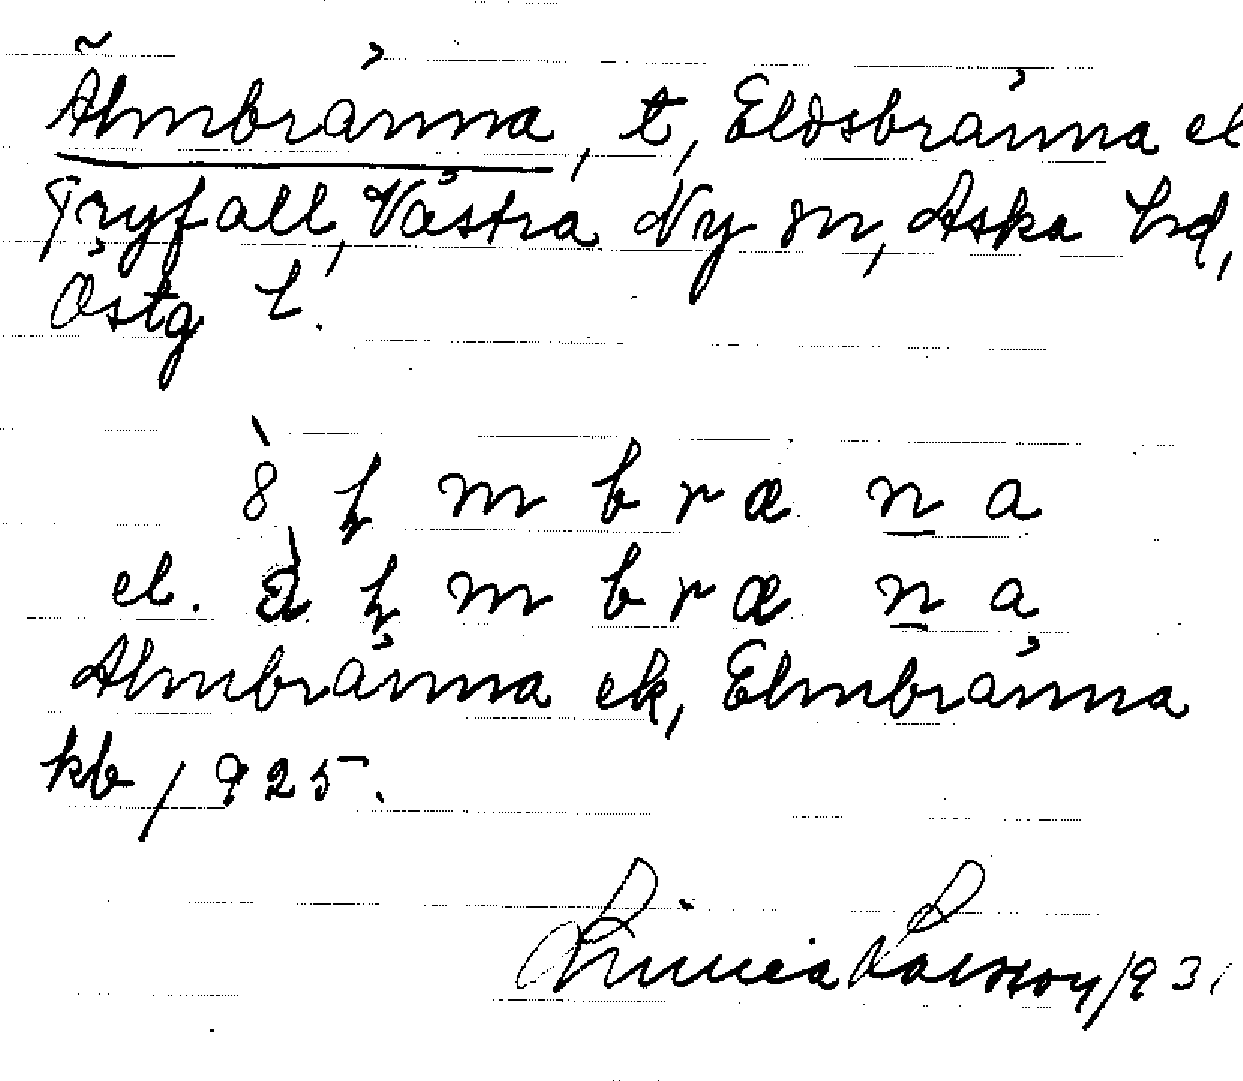 Älmbränna, t, Eldsbränna el
Gryfall, Västra Ny sn, Aska hd,
Östg l.
m b r æ n a
el. m b r æ n a
Älmbränna ek, Elmbränna
kb 1925.
Linnea Larsson 1931